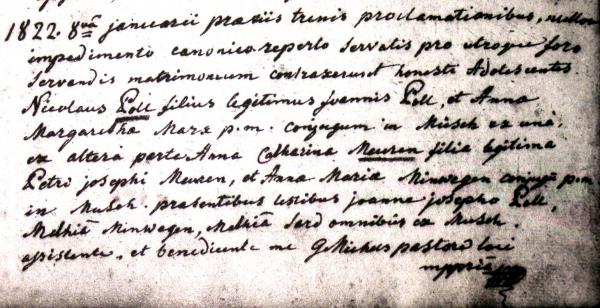 1822. 8va januarii praviis trenis proclamationibus, nullo
impedimento canonico reperto servatis pro utroque foro
servandis matrimonium contraxerunt honeste Adolescentes
Nicolaus Poll filius legitimus joannis Poll, et Anna
Margaretha Marx p.m. conjugum in Müsch ex una,
ex altera parte Anna Catharina Meuren filia legitima
Petri josephi Meuren, et Anna Maria Minwegen conjugū p.m
in Musch. prasentibus testibus joanne josepho Poll,
Minwegen, omnibus ex Musch.
assistente, et benedicente me pastore loci